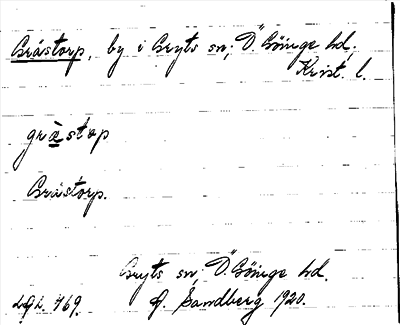 Gråstorp, by i Gryts sn; Ö. Göinge hd,
Krist. l.
gråstop
Gråstorp.
Gryts sn; Ö. Göinge hd.
LGL. 469. G. Sandberg 1920.